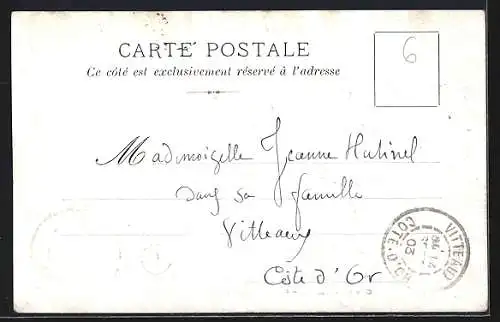 CARTE POSTALE
Ce côté est exclusivement réservé à l'adresse
6
Mademoizelle Jeanne Hutinel
dans sa famille
Vitteaux
Côte d'Or
VITTEAUX
CÔTE-D'OR
03